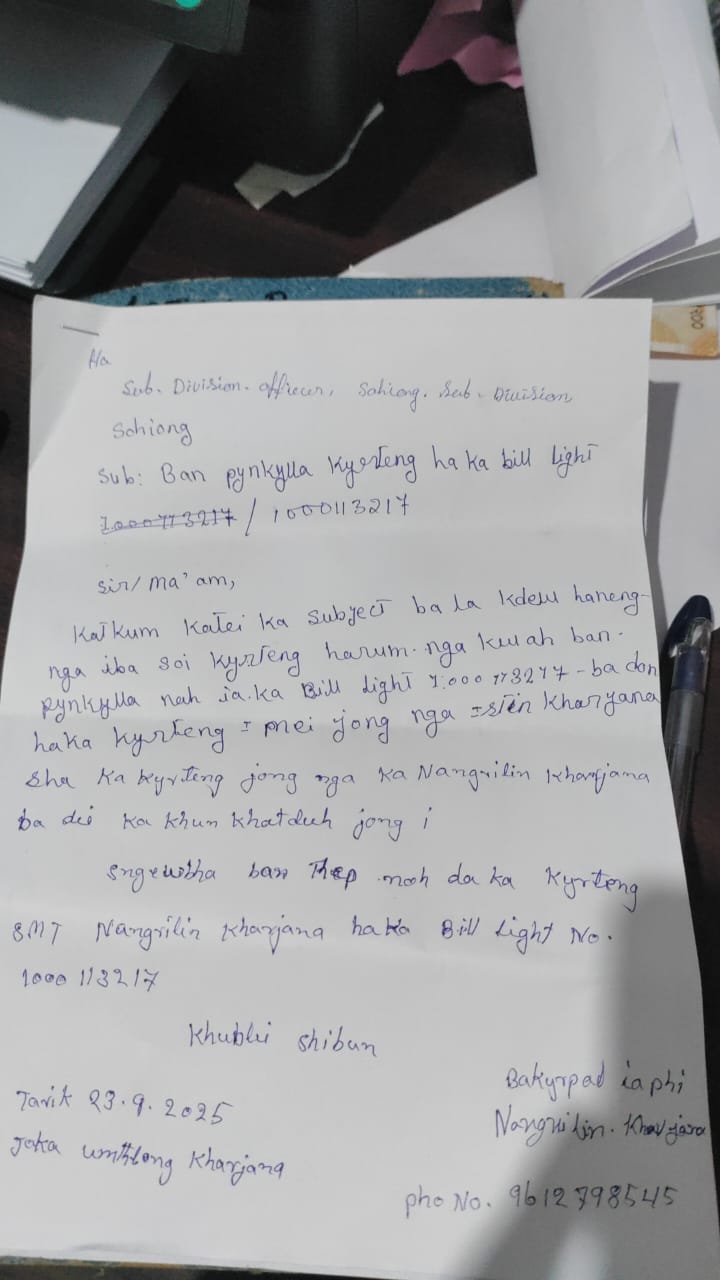 Ha
Sub. Division. officer, Sohiong. Sub. Division
Sohiong
Sub: Ban pynkylla Kyrteng ha ka bill light
1000113217 / 1000113217
Sir/ Ma'am,
Katkum Katei ka subject ba la kdew haneng
nga iba soi kyrteng harum. nga kwah ban.
pynkylla noh ia. ka Bill light 1000113217 - ba don
haka kyrteng I mei jong nga Isten Kharjana
sha ka kyrteng jong nga ka Nangrilin Kharjana
ba dei ka khun khatduh jong i
Sngewbha ban Thep noh da ka Kyrteng
SMT Nangrilin Kharjana haka Bill Light No.
1000113217
Khublei shibun
Bakyrpad ia phi
Tarik 23.9.2025
Nangrilin. Kharjana
Jaka umtlong Kharjana
pho No. 9612798545